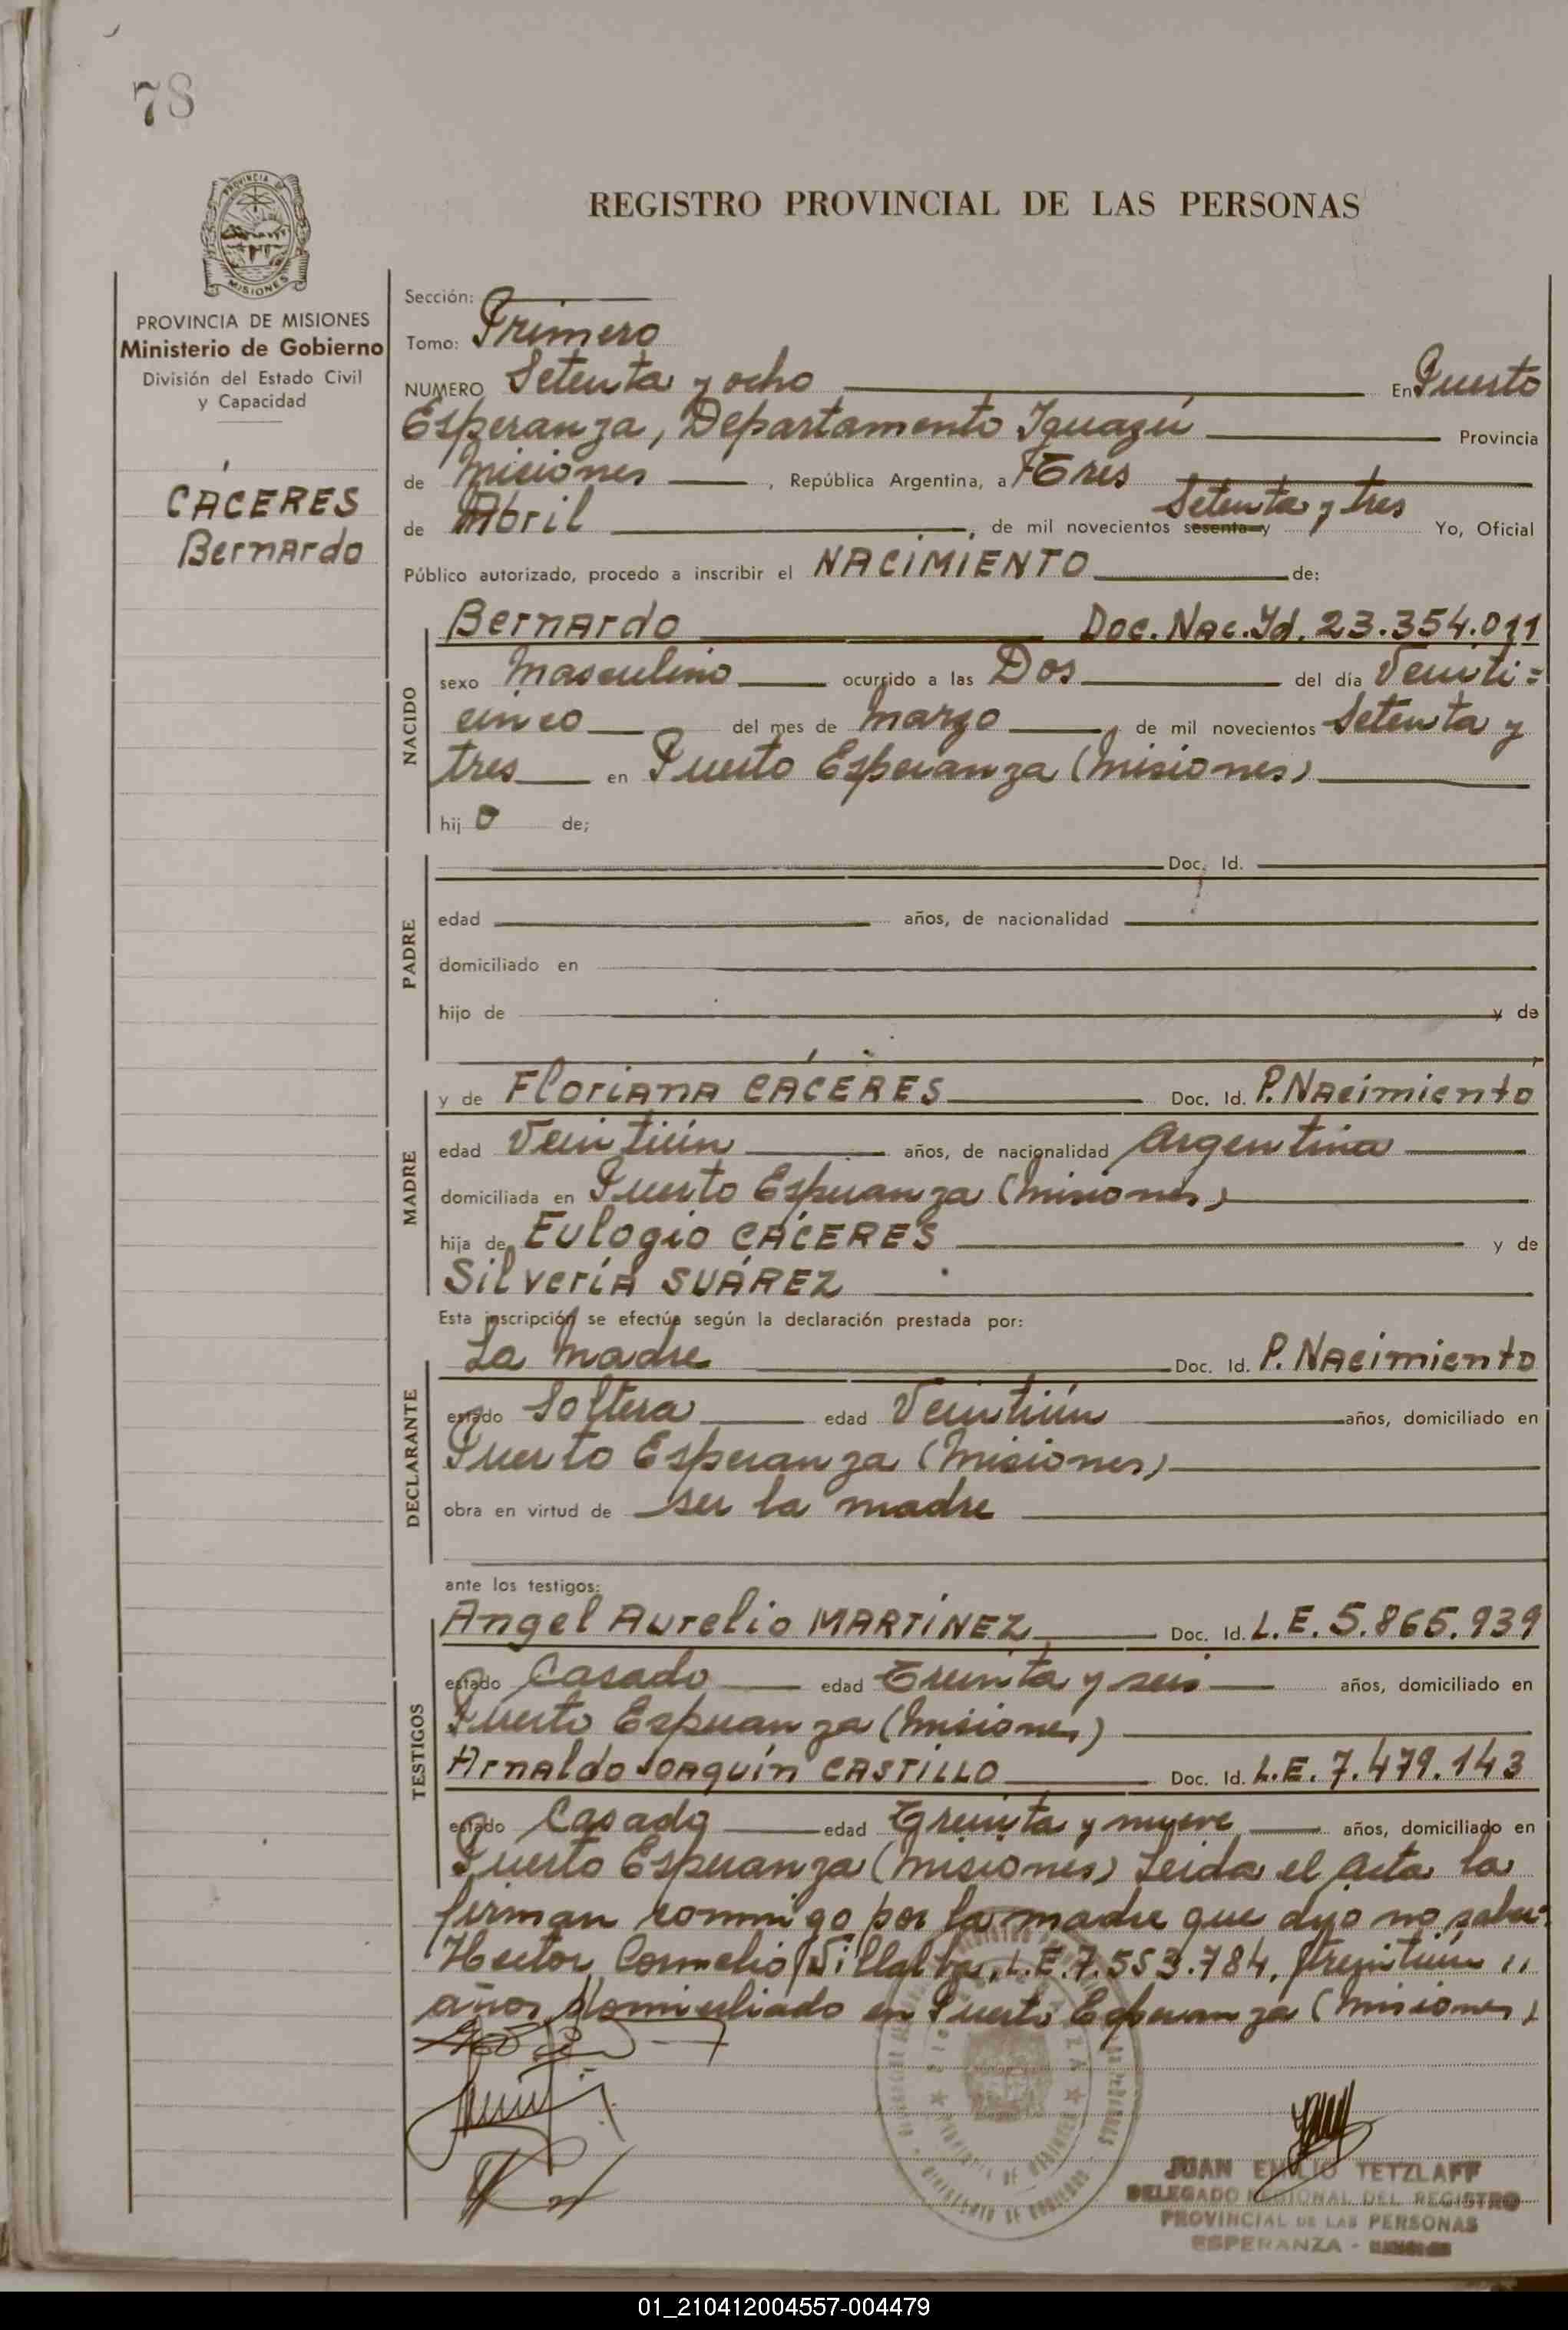 78
PROVINCIA
MISIONES
PROVINCIA DE MISIONES
Ministerio de Gobierno
División del Estado Civil
y Capacidad
CÁCERES
Bernardo
REGISTRO PROVINCIAL DE LAS PERSONAS
Sección:
Tomo: Primero
NUMERO Setenta y ocho En Puerto
Esperanza, Departamento Iguazú Provincia
de Misiones , República Argentina, a Tres
de Abril , de mil novecientos sesenta y Setenta y tres Yo, Oficial
Público autorizado, procedo a inscribir el NACIMIENTO de:
NACIDO
Bernardo Doc. Nac. Id. 23.354.011
sexo Masculino ocurrido a las Dos del día Veinti=
cinco del mes de Marzo , de mil novecientos Setenta y
tres en Puerto Esperanza (Misiones)
hij o de;
PADRE
Doc. Id.
edad años, de nacionalidad
domiciliado en
hijo de y de
MADRE
y de Floriana CÁCERES Doc. Id. P. Nacimiento
edad Veintiún años, de nacionalidad Argentina
domiciliada en Puerto Esperanza (Misiones)
hija de Eulogio CÁCERES y de
Silveria SUÁREZ
Esta inscripción se efectúa según la declaración prestada por:
DECLARANTE
La Madre Doc. Id. P. Nacimiento
estado Soltera edad Veintiún años, domiciliado en
Puerto Esperanza (Misiones)
obra en virtud de ser la madre
ante los testigos:
TESTIGOS
Angel Aurelio MARTÍNEZ Doc. Id. L.E. 5.865.939
estado Casado edad Treinta y seis años, domiciliado en
Puerto Esperanza (Misiones)
Arnaldo Joaquín CASTILLO Doc. Id. L.E. 7.479.143
estado Casado edad Treinta y nueve años, domiciliado en
Puerto Esperanza (Misiones) Leida el Acta la
firman conmigo por la madre que dijo no saber
Hector Cornelio Villalba, L.E. 7.553.784, treintiún
años domiciliado en Puerto Esperanza (Misiones)
JUAN EMILIO TETZLAFF
DELEGADO REGIONAL DEL REGISTRO
PROVINCIAL DE LAS PERSONAS
ESPERANZA - MISIONES
01_210412004557-004479